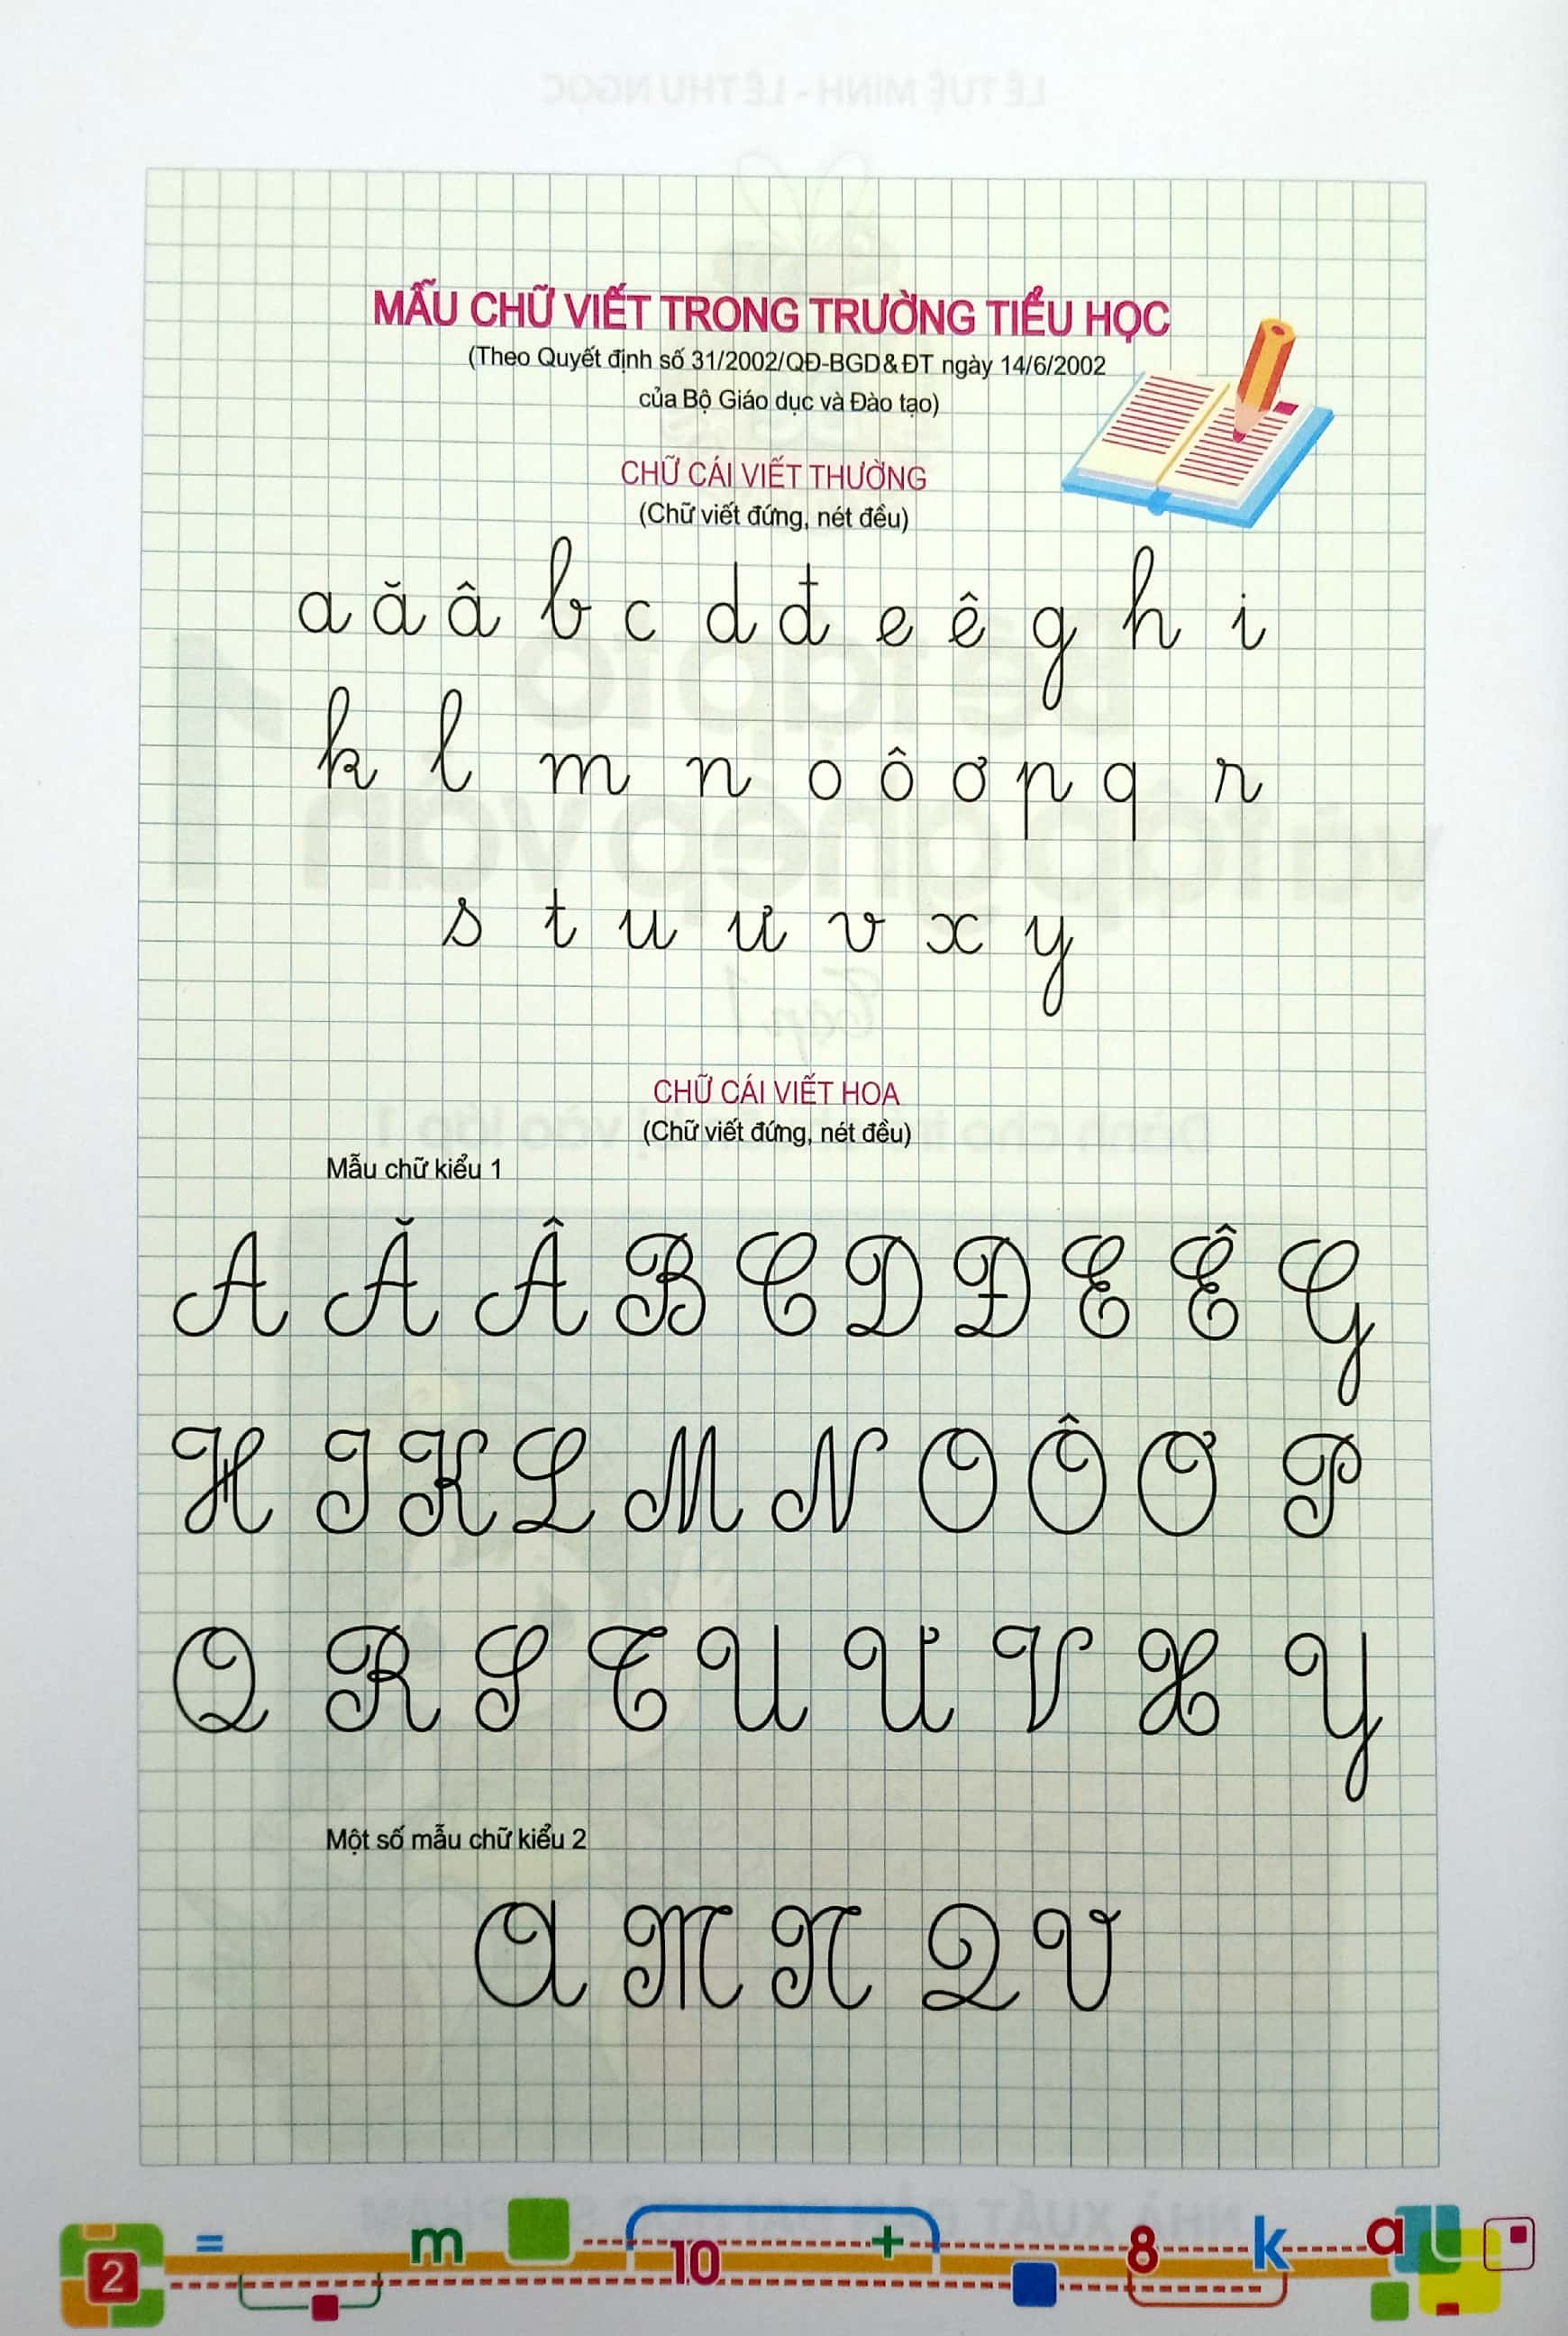 MẪU CHỮ VIẾT TRONG TRƯỜNG TIỂU HỌC
(Theo Quyết định số 31/2002/QĐ-BGD&ĐT ngày 14/6/2002
của Bộ Giáo dục và Đào tạo)
CHỮ CÁI VIẾT THƯỜNG
(Chữ viết đứng, nét đều)
a ă â b c d đ e ê g h i
k l m n o ô ơ p q r
s t u ư v x y
CHỮ CÁI VIẾT HOA
(Chữ viết đứng, nét đều)
Mẫu chữ kiểu 1
A Ă Â B C D Đ E Ê G
H I K L M N O Ô Ơ P
Q R S T U Ư V X Y
Một số mẫu chữ kiểu 2
A M N Q V
2 = m 10 + 8 k a